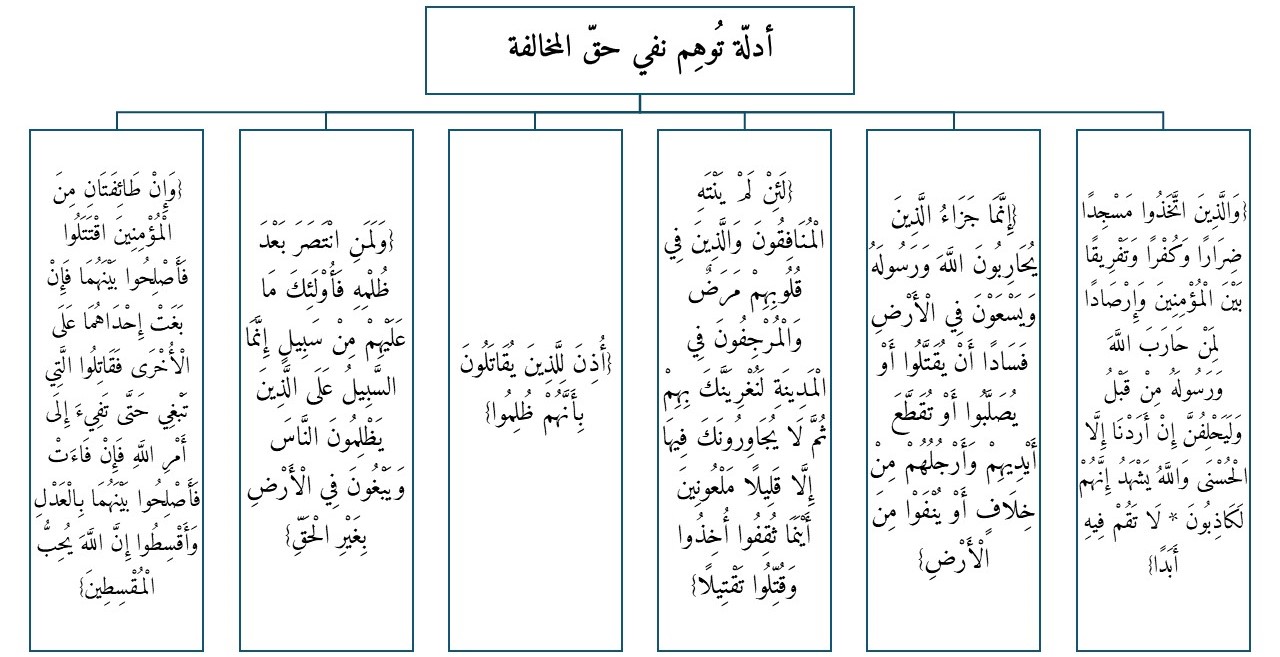 أدلّة تُوهِم نفي حقّ المخالفة
{وَالَّذِينَ اتَّخَذُوا مَسْجِدًا
ضِرَارًا وَكُفْرًا وَتَفْرِيقًا
بَيْنَ الْمُؤْمِنِينَ وَإِرْصَادًا
لِمَنْ حَارَبَ اللَّهَ
وَرَسُولَهُ مِنْ قَبْلُ
وَلَيَحْلِفُنَّ إِنْ أَرَدْنَا إِلَّا
الْحُسْنَى وَاللَّهُ يَشْهَدُ إِنَّهُمْ
لَكَاذِبُونَ * لَا تَقُمْ فِيهِ
أَبَدًا}
{إِنَّمَا جَزَاءُ الَّذِينَ
يُحَارِبُونَ اللَّهَ وَرَسُولَهُ
وَيَسْعَوْنَ فِي الْأَرْضِ
فَسَادًا أَنْ يُقَتَّلُوا أَوْ
يُصَلَّبُوا أَوْ تُقَطَّعَ
أَيْدِيهِمْ وَأَرْجُلُهُمْ مِنْ
خِلَافٍ أَوْ يُنْفَوْا مِنَ
الْأَرْضِ}
{لَئِنْ لَمْ يَنْتَهِ
الْمُنَافِقُونَ وَالَّذِينَ فِي
قُلُوبِهِمْ مَرَضٌ
وَالْمُرْجِفُونَ فِي
الْمَدِينَةِ لَنُغْرِيَنَّكَ بِهِمْ
ثُمَّ لَا يُجَاوِرُونَكَ فِيهَا
إِلَّا قَلِيلًا مَلْعُونِينَ
أَيْنَمَا ثُقِفُوا أُخِذُوا
وَقُتِّلُوا تَقْتِيلًا}
{أُذِنَ لِلَّذِينَ يُقَاتَلُونَ
بِأَنَّهُمْ ظُلِمُوا}
{وَلَمَنِ انْتَصَرَ بَعْدَ
ظُلْمِهِ فَأُوْلَئِكَ مَا
عَلَيْهِمْ مِنْ سَبِيلٍ إِنَّمَا
السَّبِيلُ عَلَى الَّذِينَ
يَظْلِمُونَ النَّاسَ
وَيَبْغُونَ فِي الْأَرْضِ
بِغَيْرِ الْحَقِّ}
{وَإِنْ طَائِفَتَانِ مِنَ
الْمُؤْمِنِينَ اقْتَتَلُوا
فَأَصْلِحُوا بَيْنَهُمَا فَإِنْ
بَغَتْ إِحْدَاهُمَا عَلَى
الْأُخْرَى فَقَاتِلُوا الَّتِي
تَبْغِي حَتَّى تَفِيءَ إِلَى
أَمْرِ اللَّهِ فَإِنْ فَاءَتْ
فَأَصْلِحُوا بَيْنَهُمَا بِالْعَدْلِ
وَأَقْسِطُوا إِنَّ اللَّهَ يُحِبُّ
الْمُقْسِطِينَ}